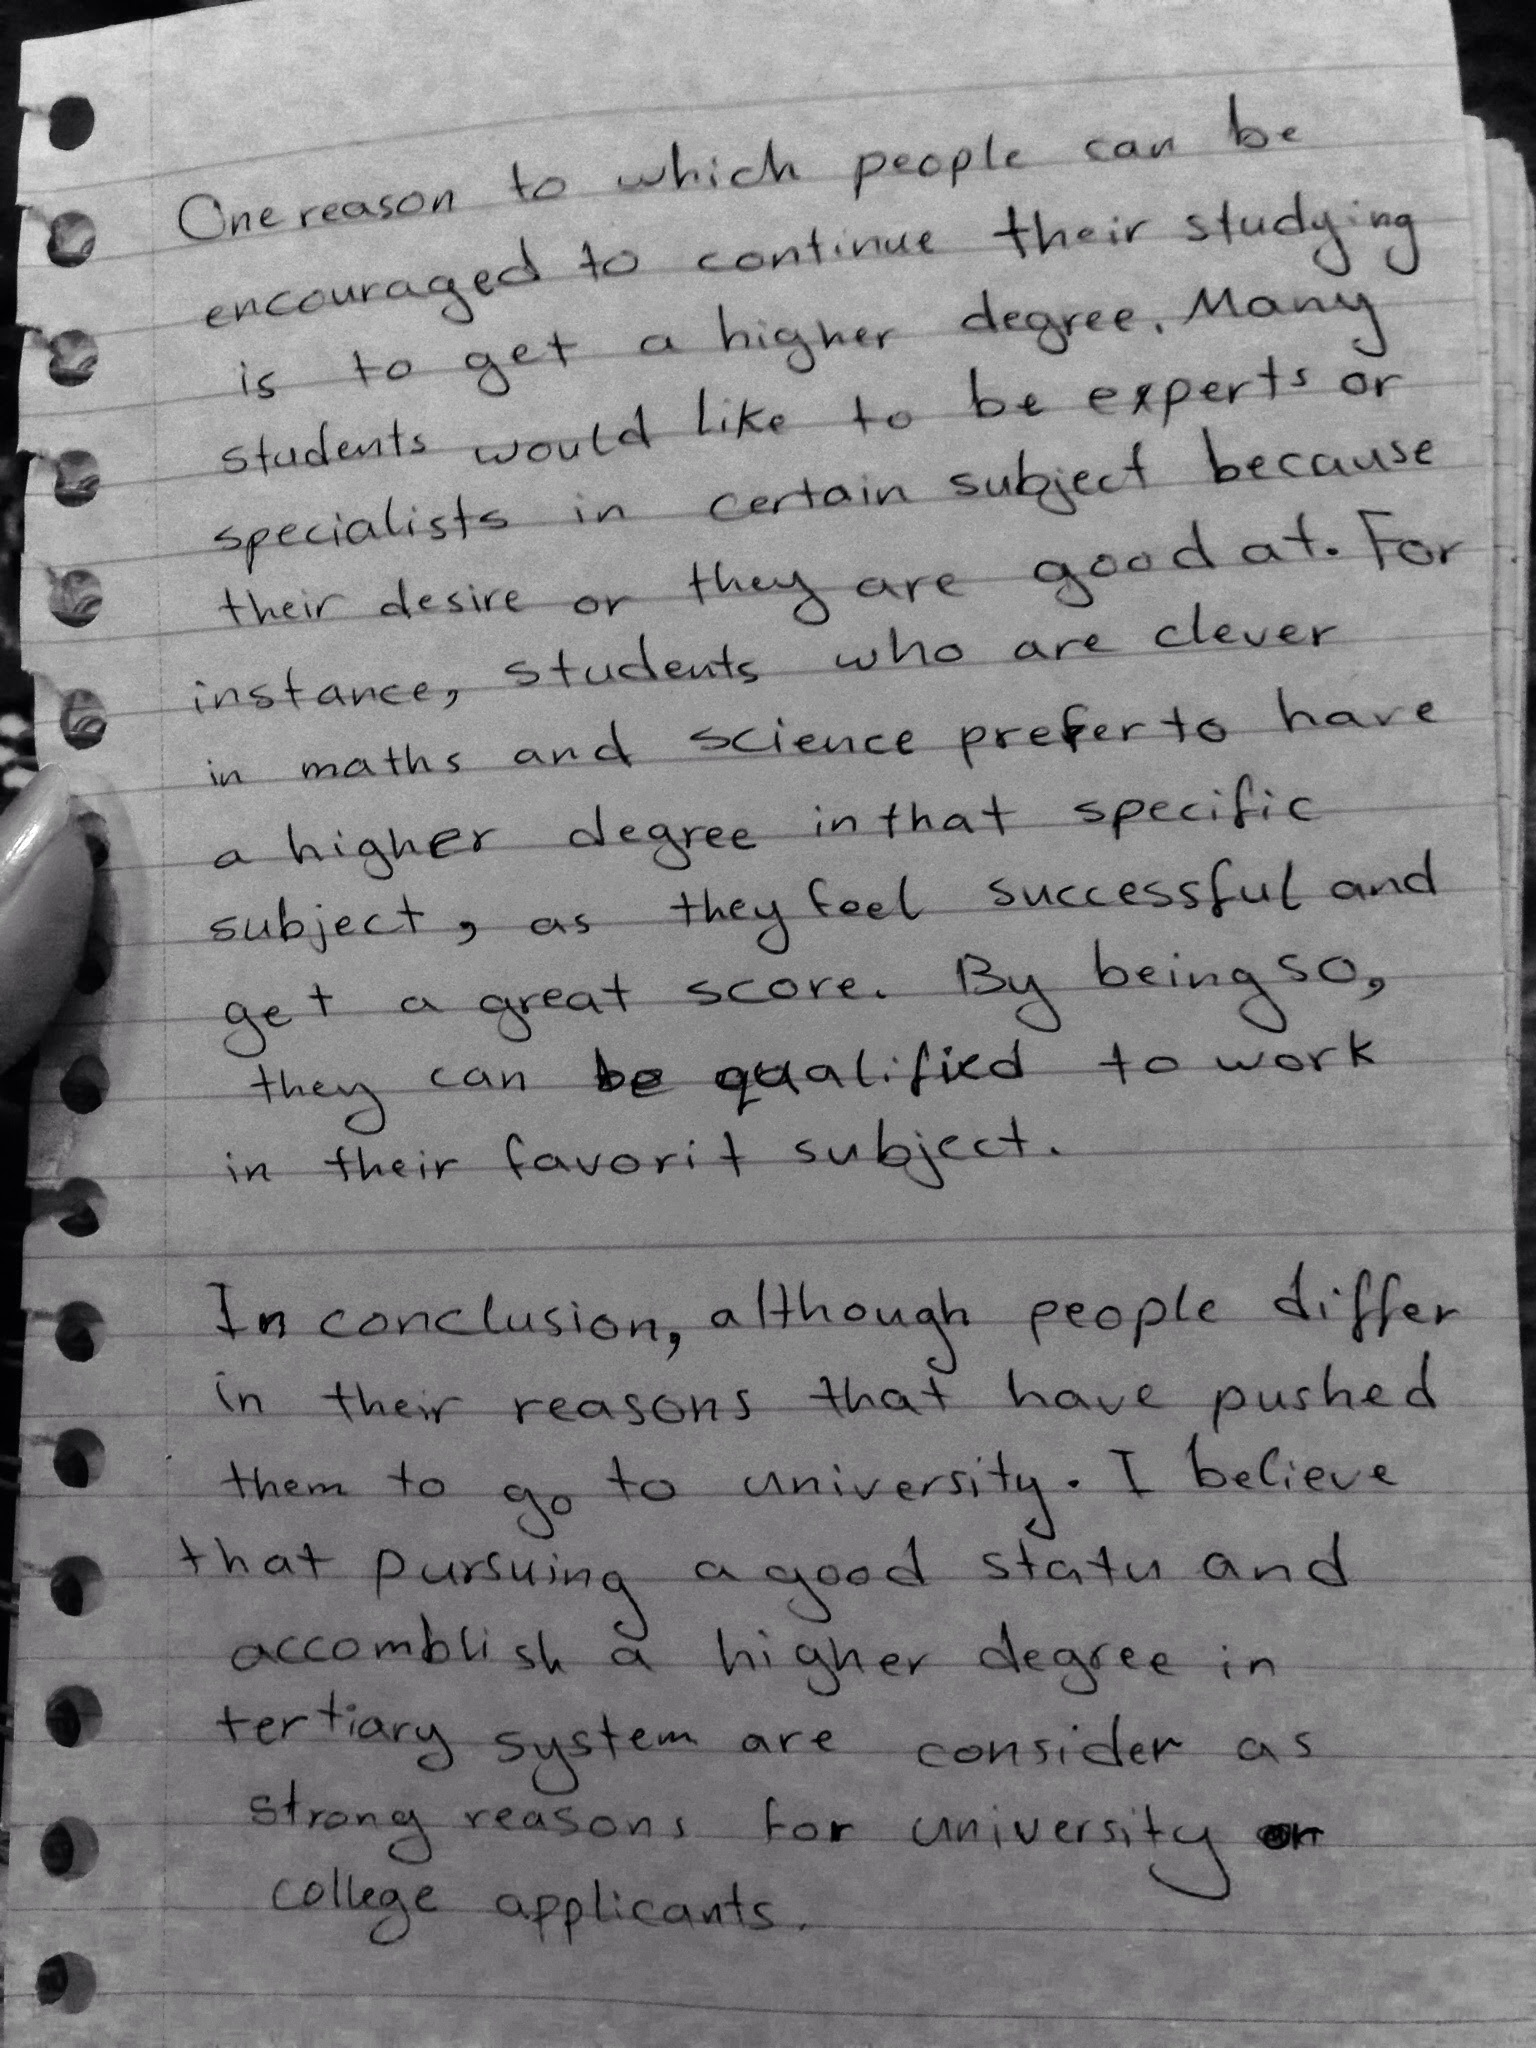 One reason to which people can be
encouraged to continue their studying
is to get a higher degree. Many
students would like to be experts or
specialists in certain subject because
their desire or they are good at. For
instance, students who are clever
in maths and science prefer to have
a higher degree in that specific
subject, as they feel successful and
get a great score. By being so,
they can be qualified to work
in their favorit subject.
In conclusion, although people differ
in their reasons that have pushed
them to go to university. I believe
that pursuing a good statu and
accomblish a higher degree in
tertiary system are consider as
strong reasons for university or
college applicants.